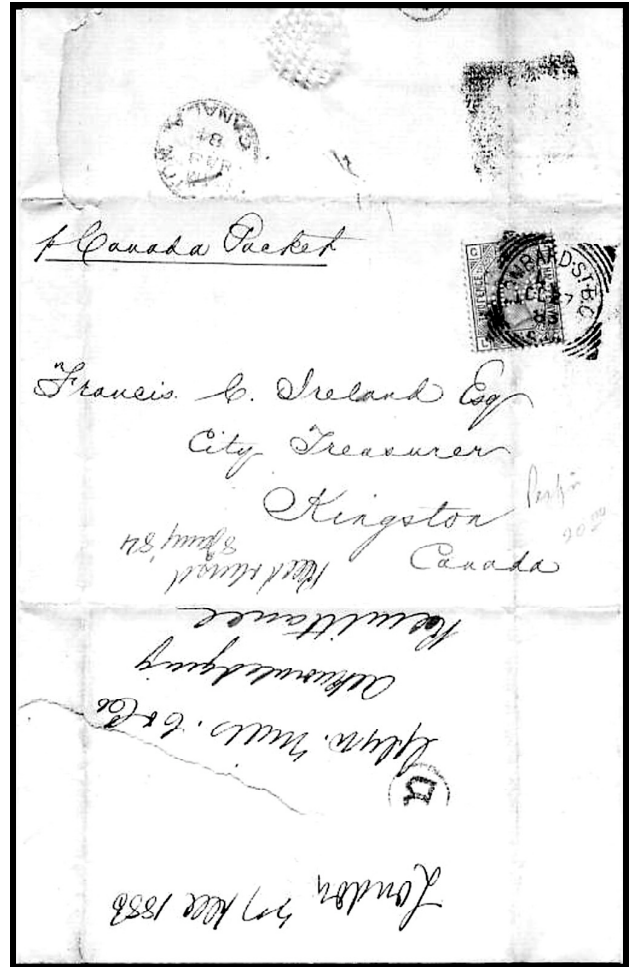 p Canada Packet
LOMBARD ST. B.O.
DE 27
83
Francis. C. Ireland Esq
City Treasurer
Kingston
Canada
London 27 Dec 1883
Glyn. Mills. C & Co
Acknowledging
Remittance
Recd & fyled
8 Jany '84
CANADA
JA 8
84